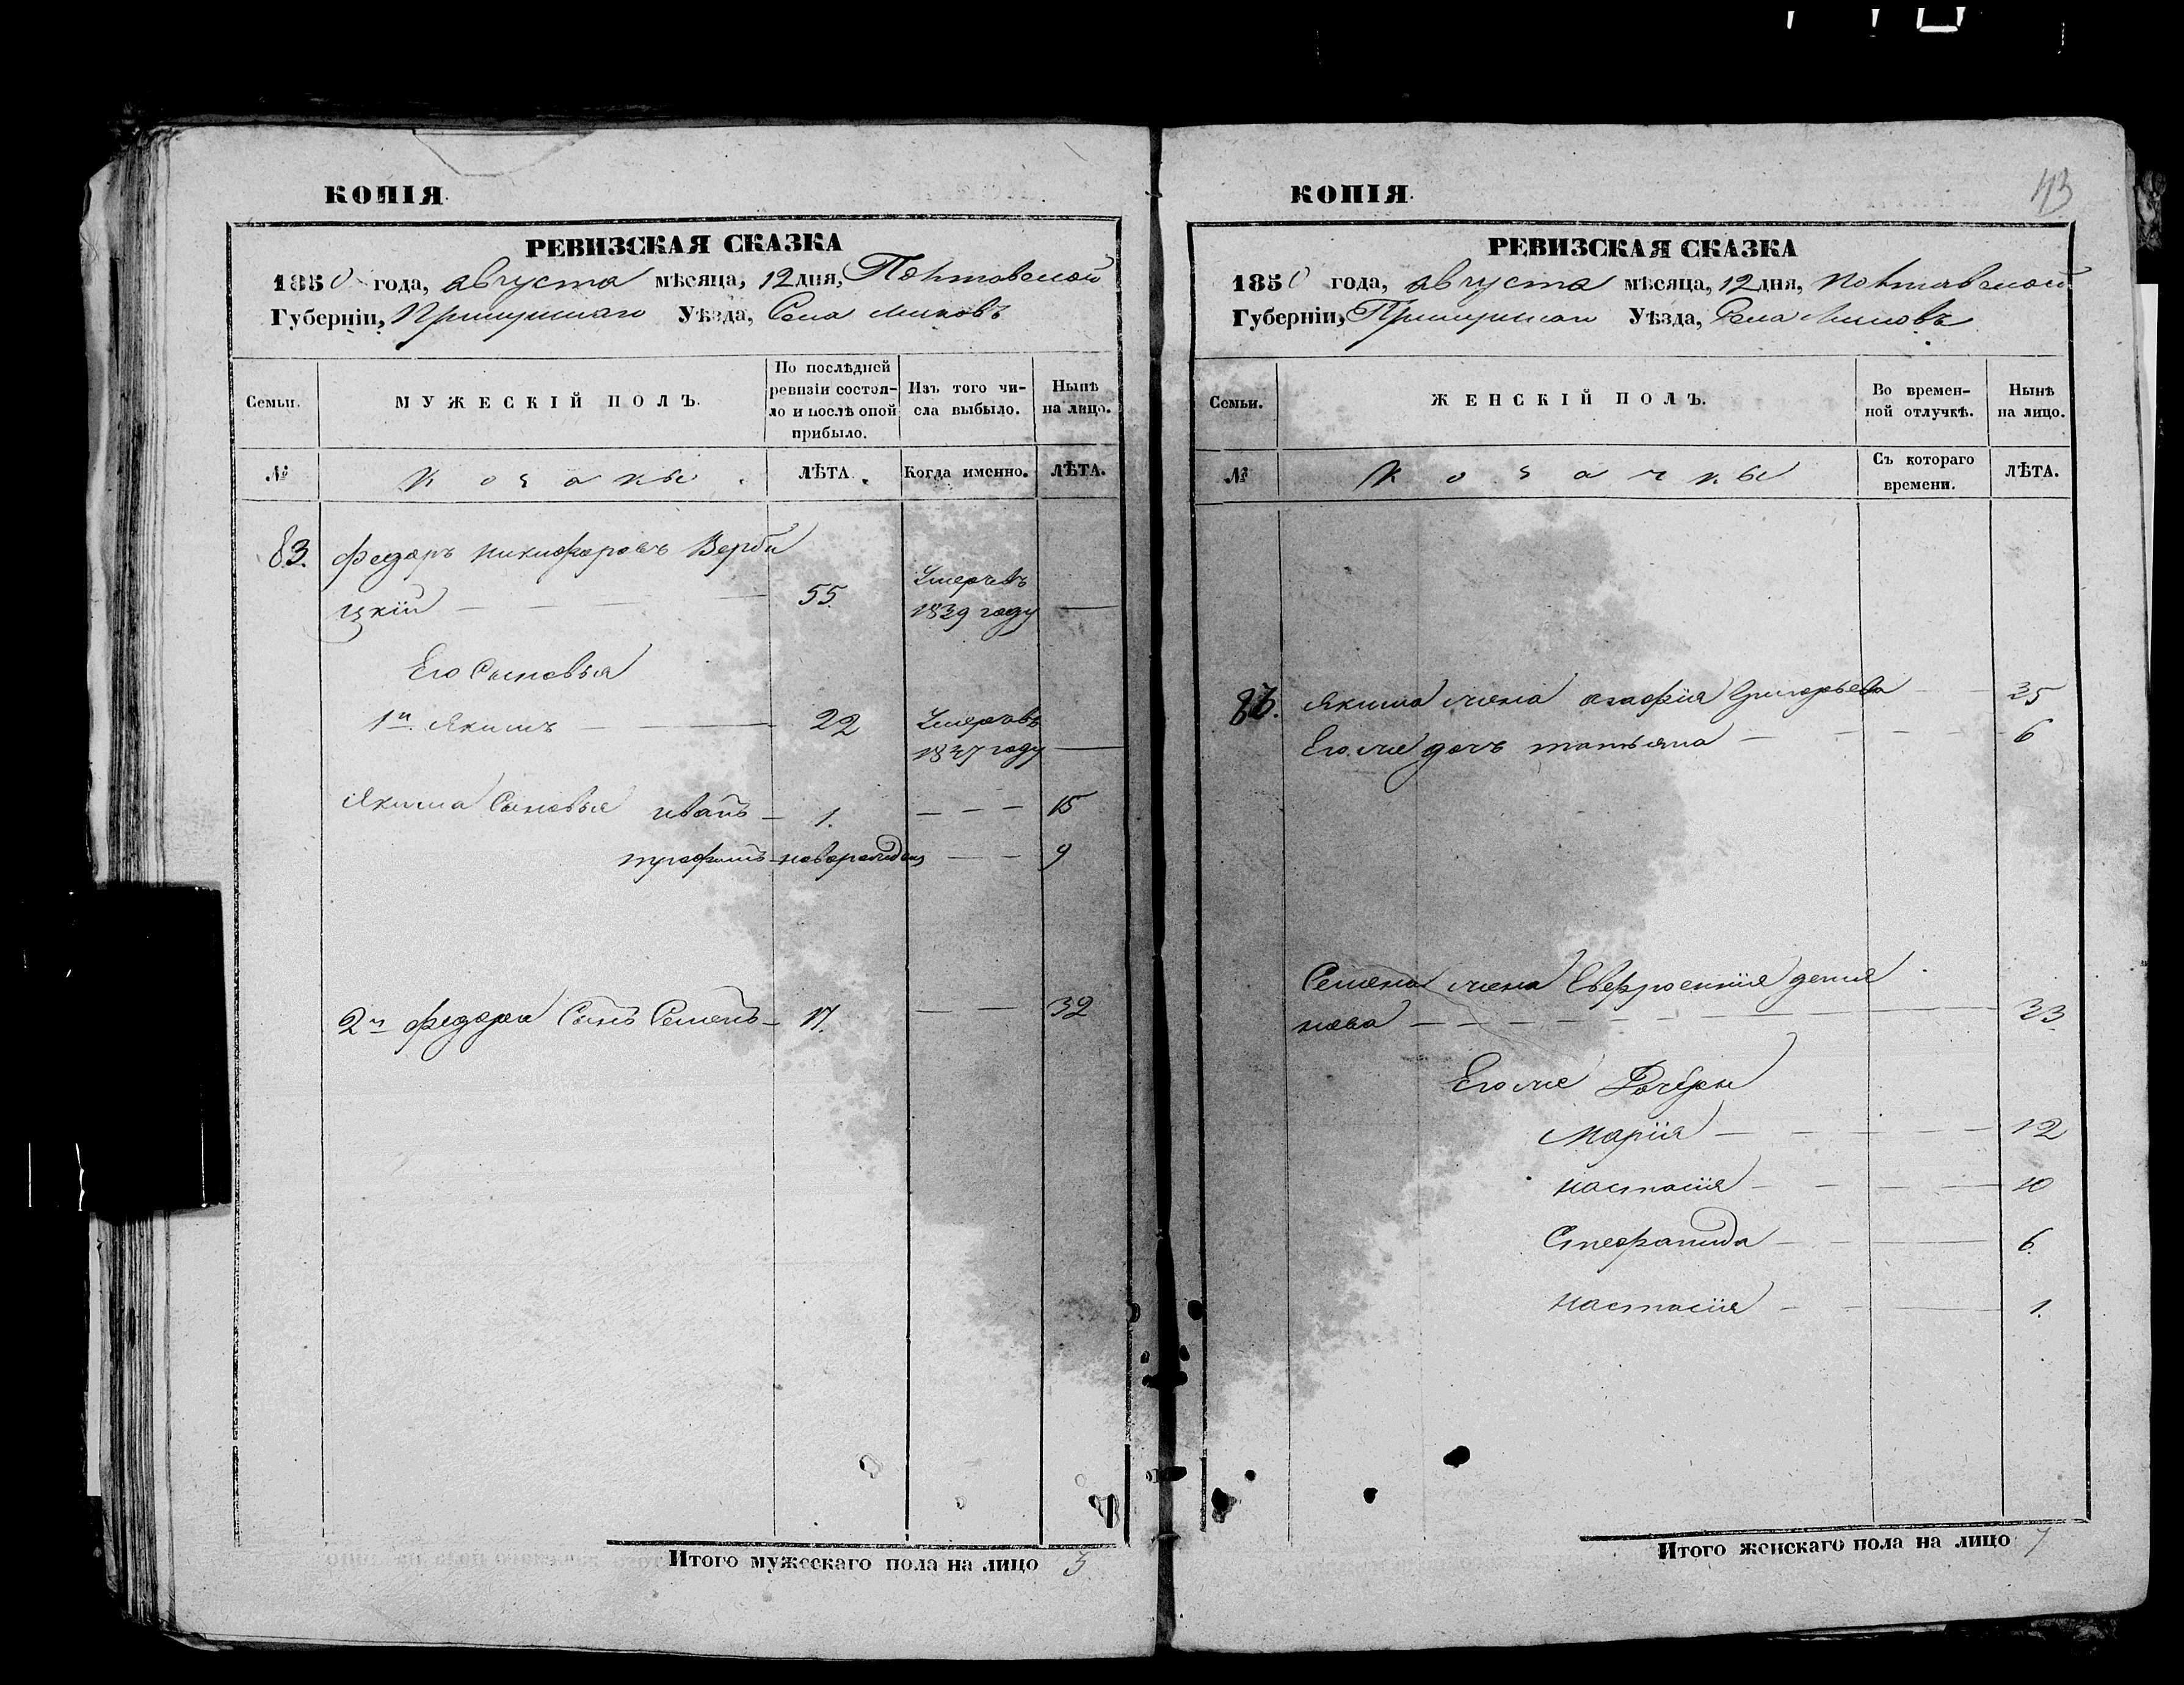 КОПІЯ.
РЕВИЗСКАЯ СКАЗКА
1850 года, августа мѣсяца, 12 дня, Полтавской
Губерніи, Уѣзда, Села
Семьи.
МУЖЕСКІЙ ПОЛЪ.
По послѣдней ревизіи состояло и послѣ оной прибыло.
Изъ того числа выбыло.
Нынѣ на лицо.
№
Козаки
ЛѢТА.
Когда именно.
ЛѢТА.
83. Федоръ Никифоровъ Верби
цкій — — — — 55. Умеръ въ
1839 году —
Его Сыновья
1й Якимъ — — 22 Умеръ въ
1847 году —
Якима Сыновья иванъ — 1. — — — 15
трофимъ — новорожден — — 9
2й федора Сынъ Семенъ — 17. — — 32
Итого мужескаго пола на лицо 3
43
КОПІЯ.
РЕВИЗСКАЯ СКАЗКА
1850 года, августа мѣсяца, 12 дня, полтавской
Губерніи, Уѣзда, Села
Семьи.
ЖЕНСКІЙ ПОЛЪ.
Во временной отлучкѣ.
Нынѣ на лицо.
№
Козачки
Съ котораго времени.
ЛѢТА.
83. Якима жена агафія Григорьева — — 35
Его же дочь татьяна — — — — 6
Семена жена Евфросинія демя
нова — — — — — — 33
Его же Дочери
Марія — — — — 12
настасія — — — — 10
Стефанида — — — 6
настасія — — — 1.
Итого женскаго пола на лицо 7